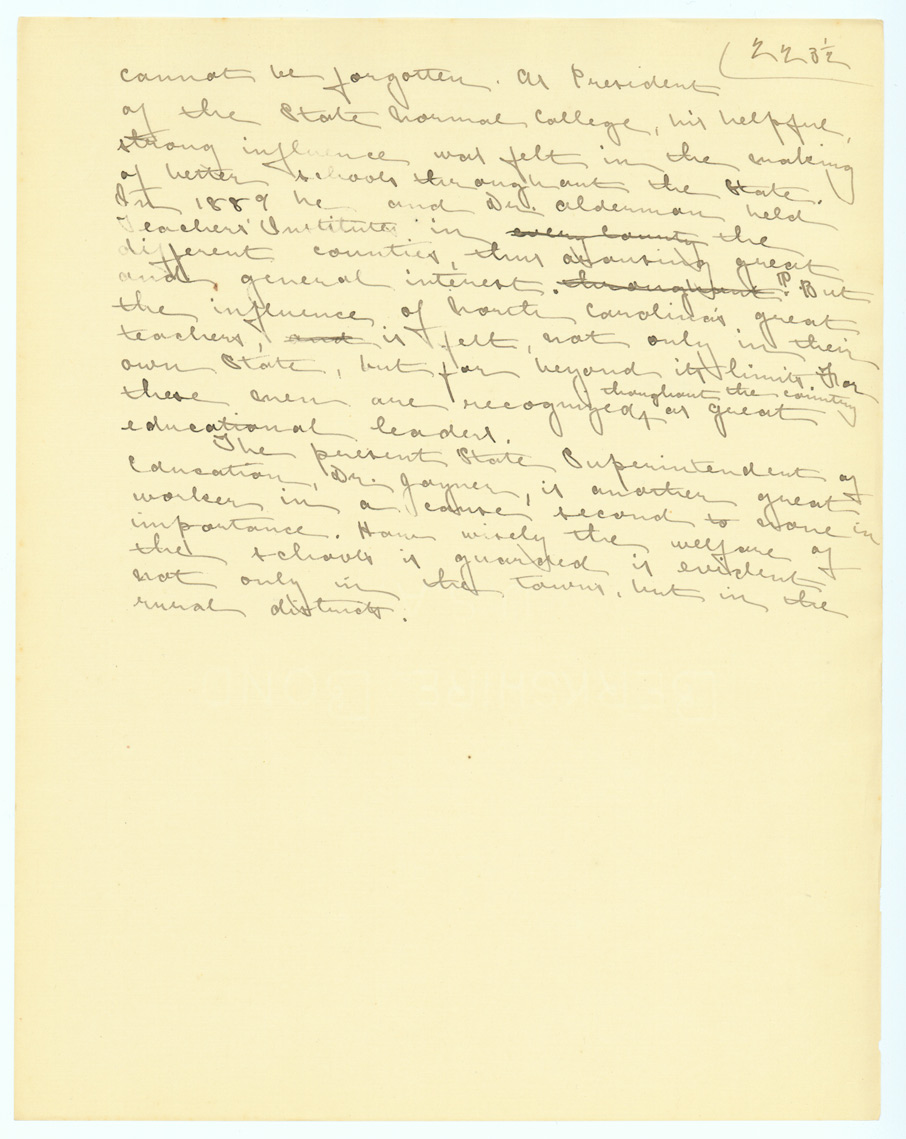 223½
cannot be forgotten. As President
of the State Normal College, his helpful,
strong influence was felt in the making
of better schools throughout the State.
In 1889 he and Dr. Alderman held
Teachers' Institutes in every County the
different counties, thus arousing great
and general interest. throughout ¶. But
the influence of North Carolina's great
teachers, and is felt, not only in their
own State, but far beyond its limits. For
throughout the country
these men are recognized, as great
educational leaders.
The present State Superintendent of
Education, Dr. Joyner, is another great
worker in a cause second to none in
importance. How wisely the welfare of
the schools is guarded is evident
not only in the towns, but in the
rural districts.
BERKSHIRE BOND